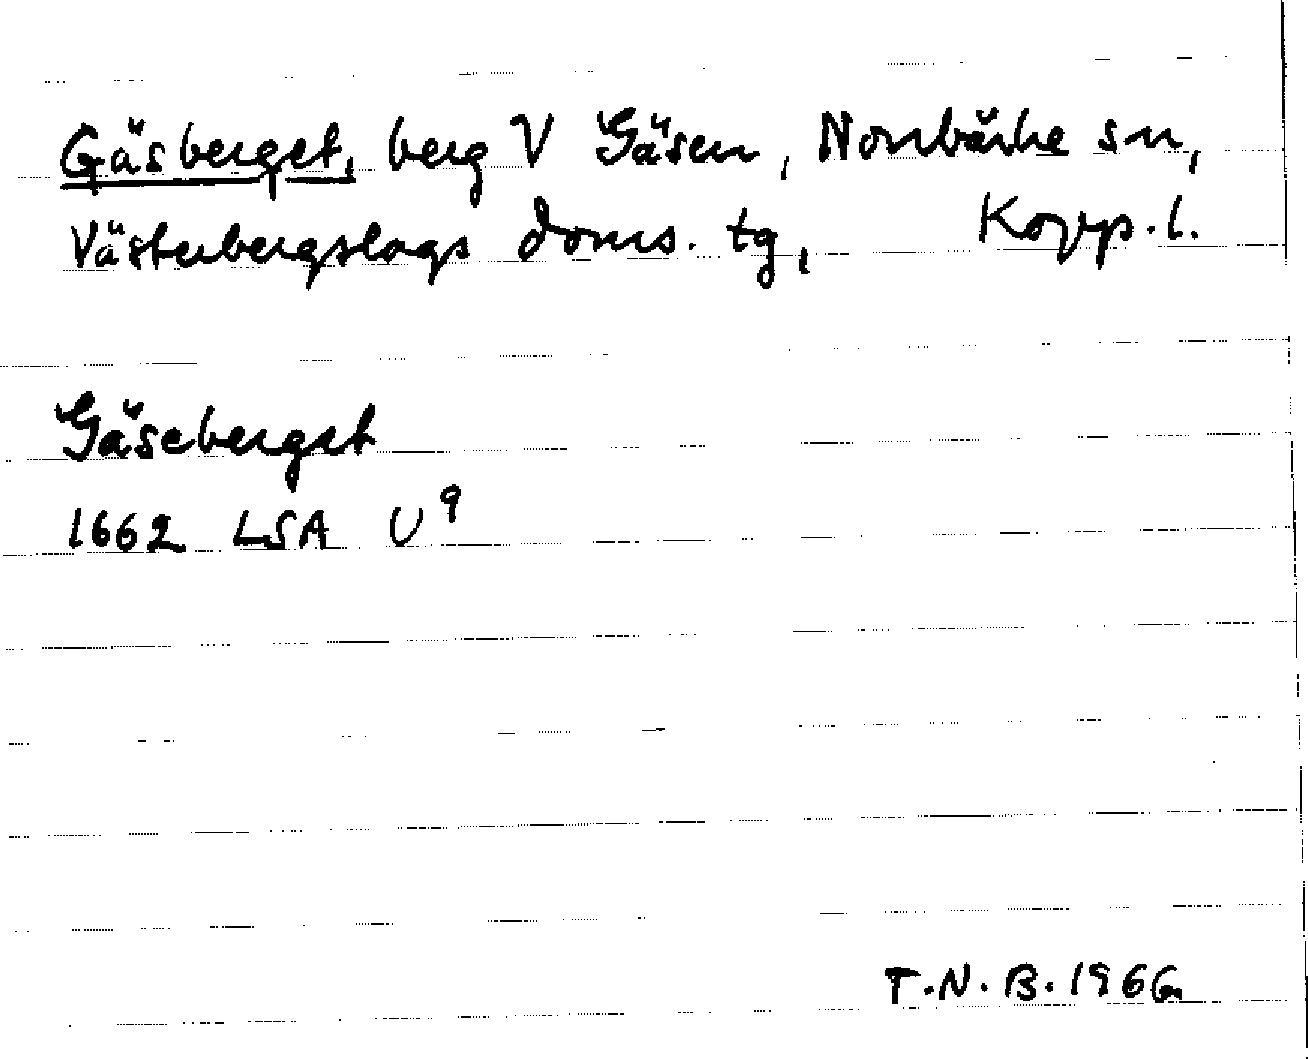 Gäsberget, berg V Gäsen, Norrbärke sn,
Västerbergslags doms. tg, Kopp. l.
Gäseberget
1662 LSA U⁹
T.N.B. 1966